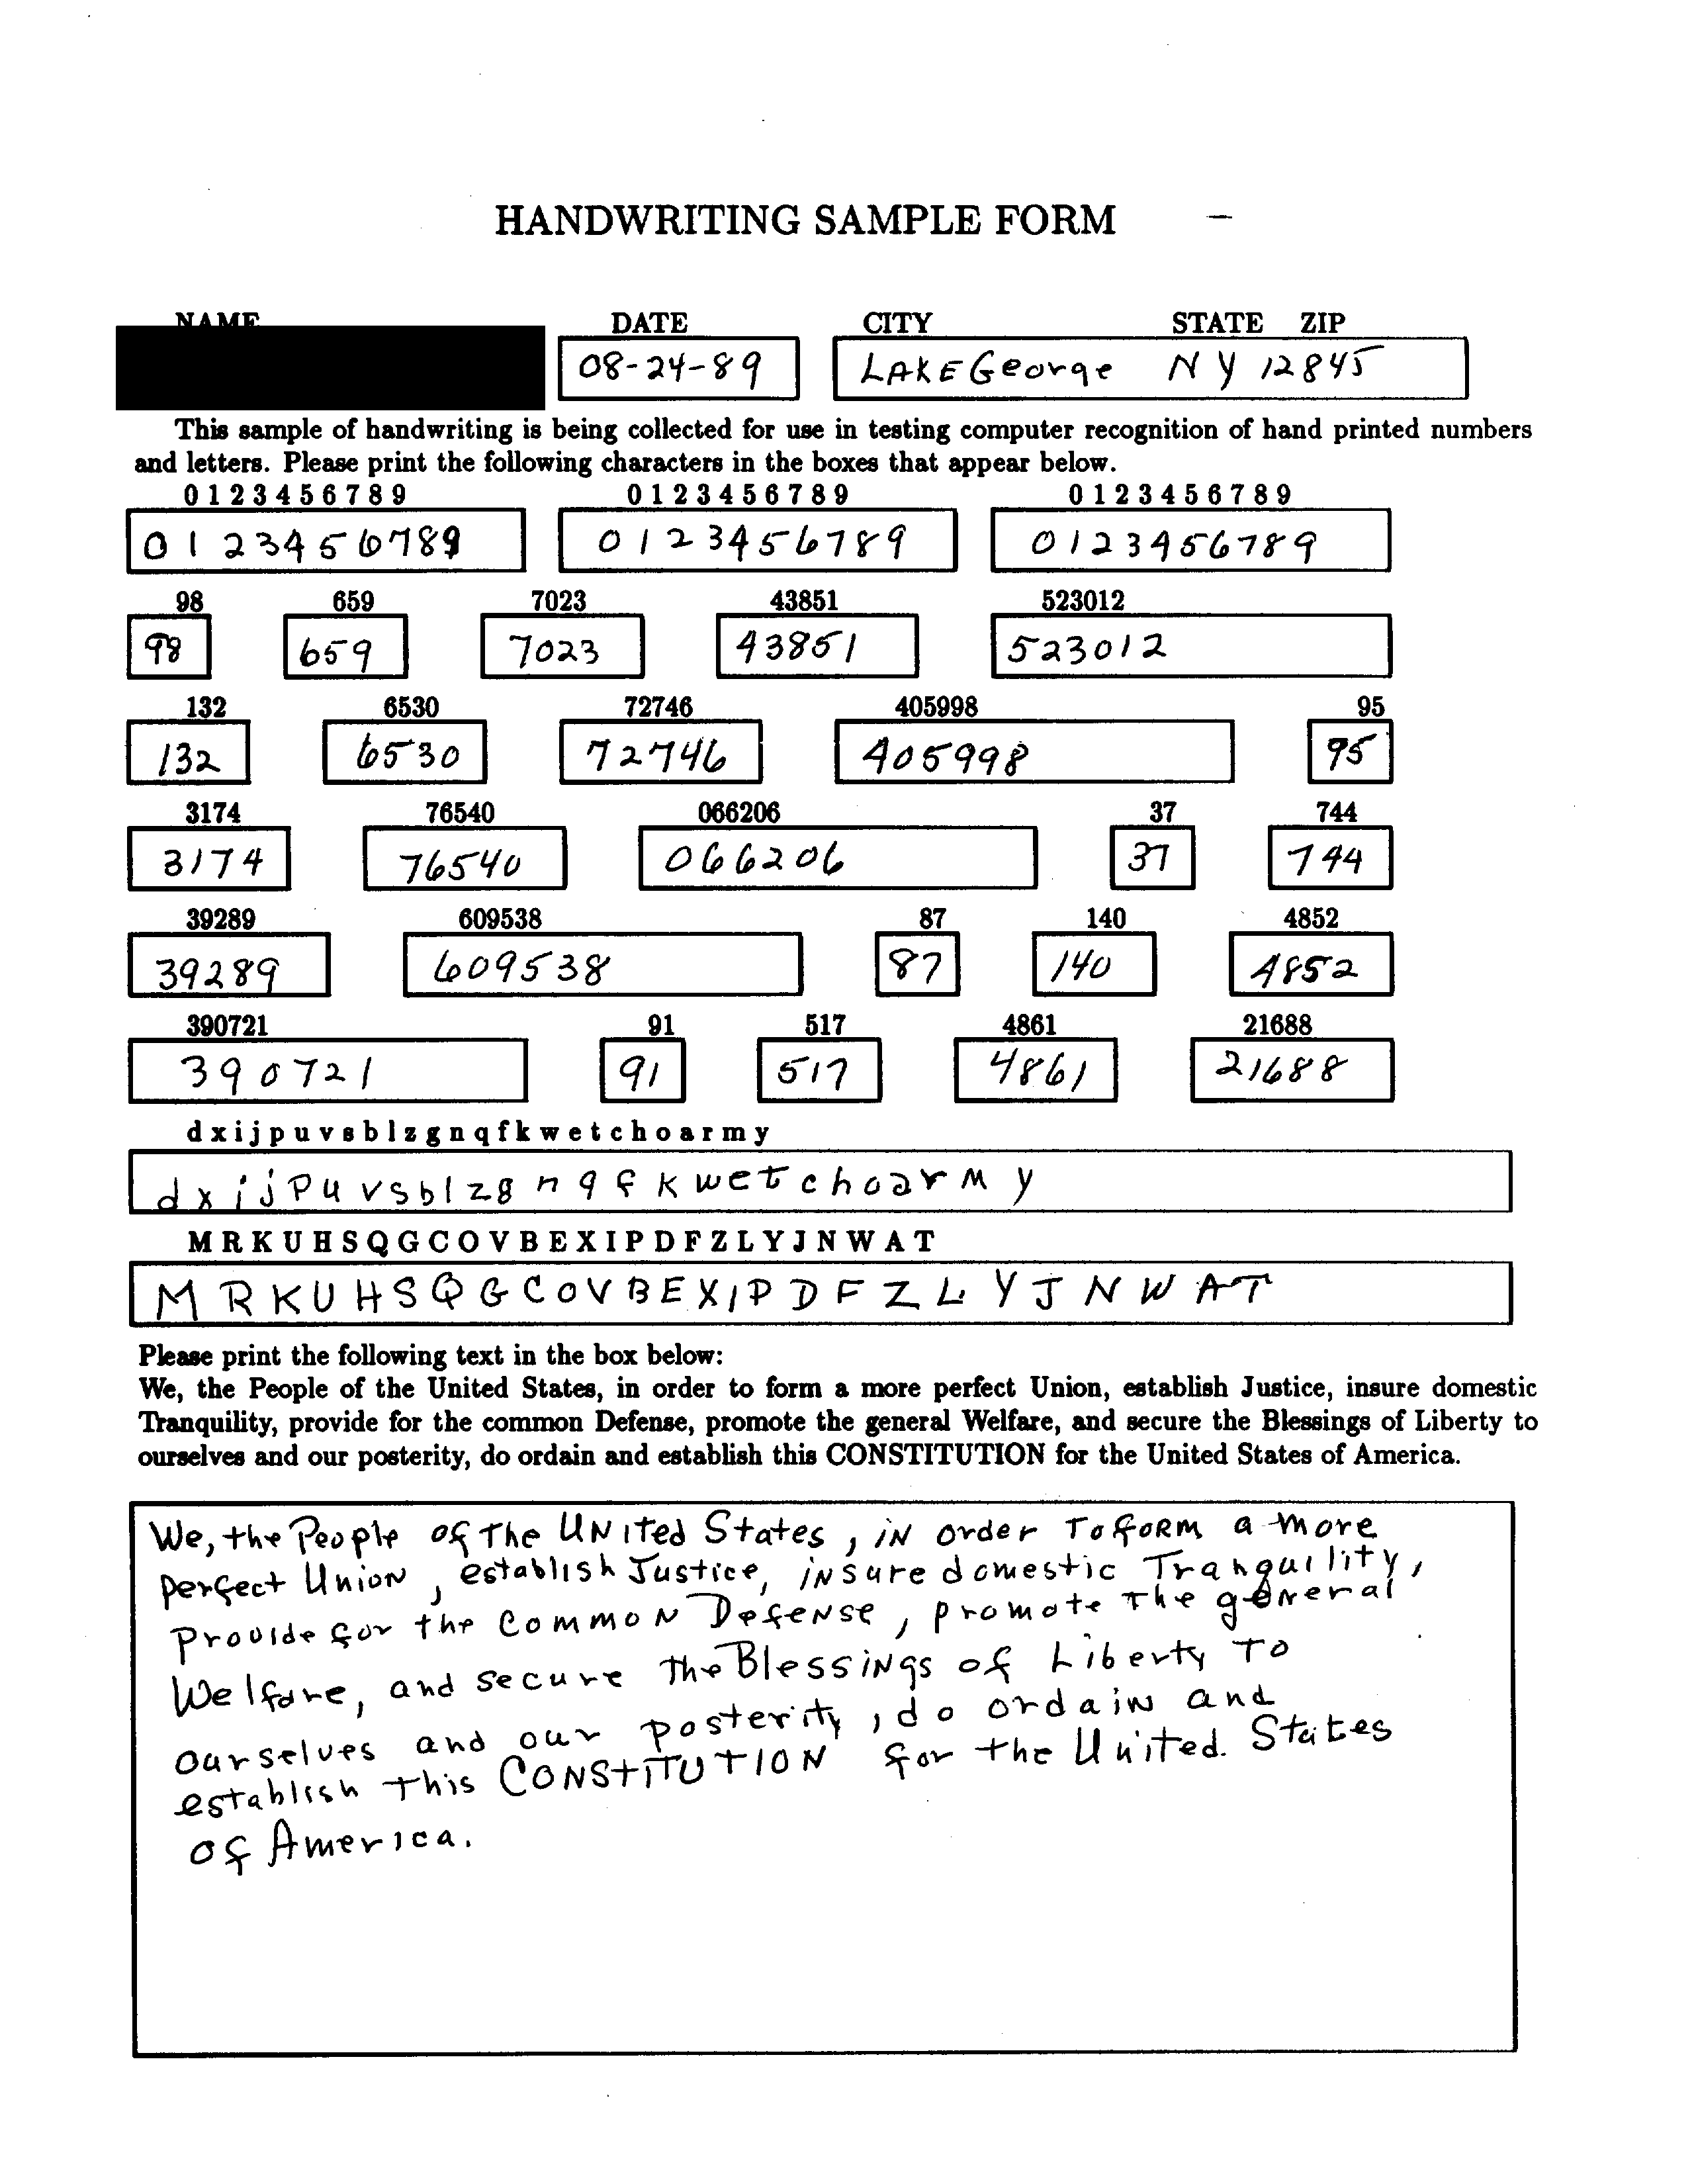 HANDWRITING SAMPLE FORM
NAME DATE CITY STATE ZIP
08-24-89 LAKE George NY 12845
This sample of handwriting is being collected for use in testing computer recognition of hand printed numbers
and letters. Please print the following characters in the boxes that appear below.
0 1 2 3 4 5 6 7 8 9 0 1 2 3 4 5 6 7 8 9 0 1 2 3 4 5 6 7 8 9
0 1 2 3 4 5 6 7 8 9 0 1 2 3 4 5 6 7 8 9 0 1 2 3 4 5 6 7 8 9
98 659 7023 43851 523012
98 659 7023 43851 523012
132 6530 72746 405998 95
132 6530 72746 405998 95
3174 76540 066206 37 744
3174 76540 066206 37 744
39289 609538 87 140 4852
39289 609538 87 140 4852
390721 91 517 4861 21688
390721 91 517 4861 21688
d x i j p u v s b l z g n q f k w e t c h o a r m y
d x i j P u v s b l z g n q f k w e t c h o a r M y
M R K U H S Q G C O V B E X I P D F Z L Y J N W A T
M R K U H S Q G C O V B E X I P D F Z L Y J N W A T
Please print the following text in the box below:
We, the People of the United States, in order to form a more perfect Union, establish Justice, insure domestic
Tranquility, provide for the common Defense, promote the general Welfare, and secure the Blessings of Liberty to
ourselves and our posterity, do ordain and establish this CONSTITUTION for the United States of America.
We, the People of The UNited States, iN order To foRM a more
perfect Union, establish Justice, iNsure domestic Tranquility,
Provide for the Common Defense, promote The general
Welfare, and secure The Blessings of Liberty To
ourselves and our posterity, do ordain and
establish This CONSTITUTION for the United States
of America.